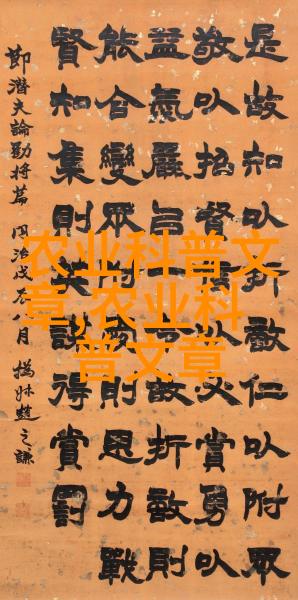 是故知以折敵仁以附眾
敬以招賢信以必賞勇以
益氣嚴以一令故折敵則
能合變眾附愛則思力戰
賢知集則英謀得賞罰
節潛夫論勸將篇 同治戊辰八月 撝叔趙之謙
农业科普文
章,农业科
普文章